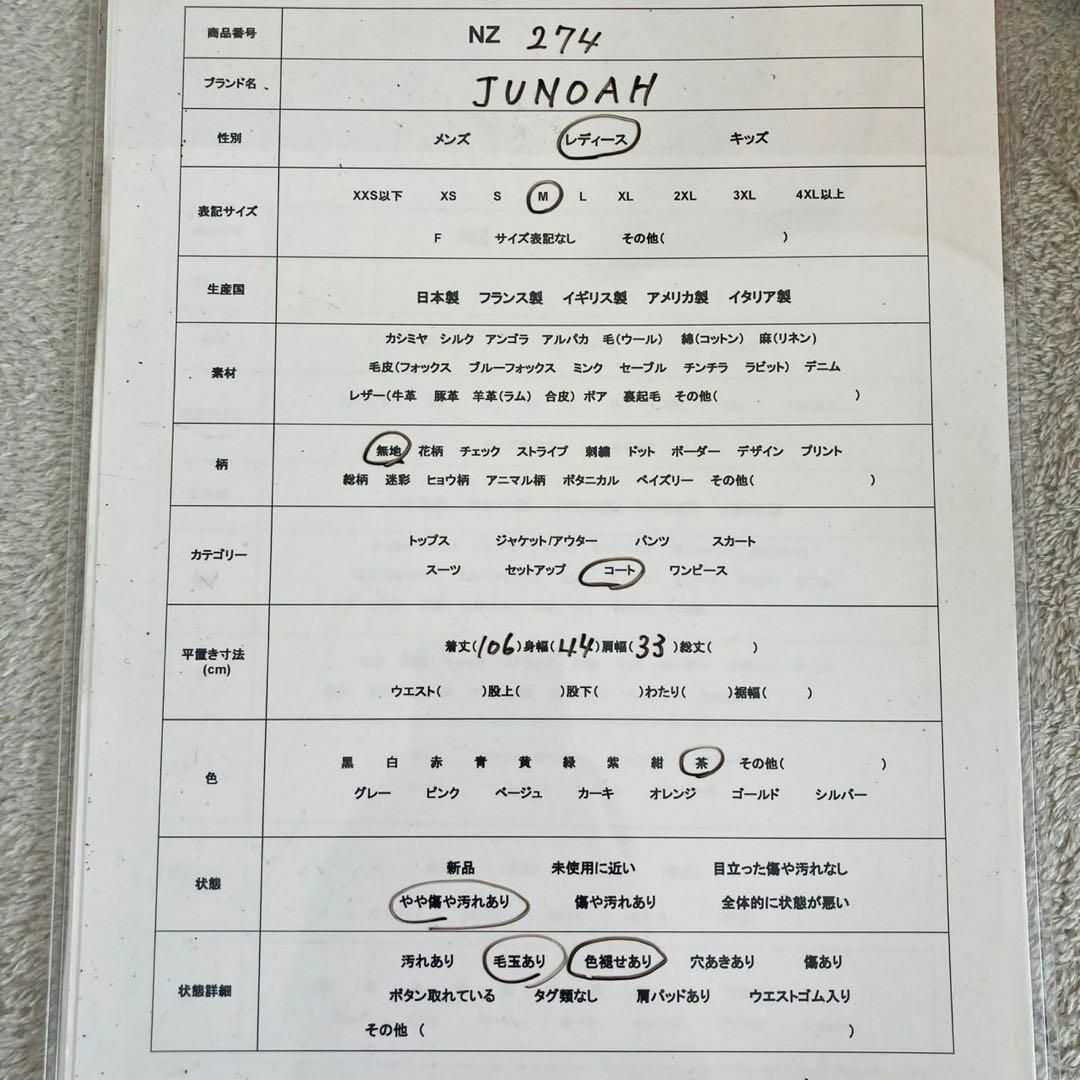 商品番号 NZ 274
ブランド名 JUNOAH
性別 メンズ レディース キッズ
表記サイズ
XXS以下 XS S M L XL 2XL 3XL 4XL以上
F サイズ表記なし その他( )
生産国 日本製 フランス製 イギリス製 アメリカ製 イタリア製
素材
カシミヤ シルク アンゴラ アルパカ 毛(ウール) 綿(コットン) 麻(リネン)
毛皮(フォックス ブルーフォックス ミンク セーブル チンチラ ラビット) デニム
レザー(牛革 豚革 羊革(ラム) 合皮) ボア 裏起毛 その他( )
柄
無地 花柄 チェック ストライプ 刺繍 ドット ボーダー デザイン プリント
総柄 迷彩 ヒョウ柄 アニマル柄 ボタニカル ペイズリー その他( )
カテゴリー
トップス ジャケット/アウター パンツ スカート
スーツ セットアップ コート ワンピース
平置き寸法
(cm)
着丈(106)身幅(44)肩幅(33)総丈( )
ウエスト( )股上( )股下( )わたり( )裾幅( )
色
黒 白 赤 青 黄 緑 紫 紺 茶 その他( )
グレー ピンク ベージュ カーキ オレンジ ゴールド シルバー
状態
新品 未使用に近い 目立った傷や汚れなし
やや傷や汚れあり 傷や汚れあり 全体的に状態が悪い
状態詳細
汚れあり 毛玉あり 色褪せあり 穴あきあり 傷あり
ボタン取れている タグ類なし 肩パッドあり ウエストゴム入り
その他 ( )